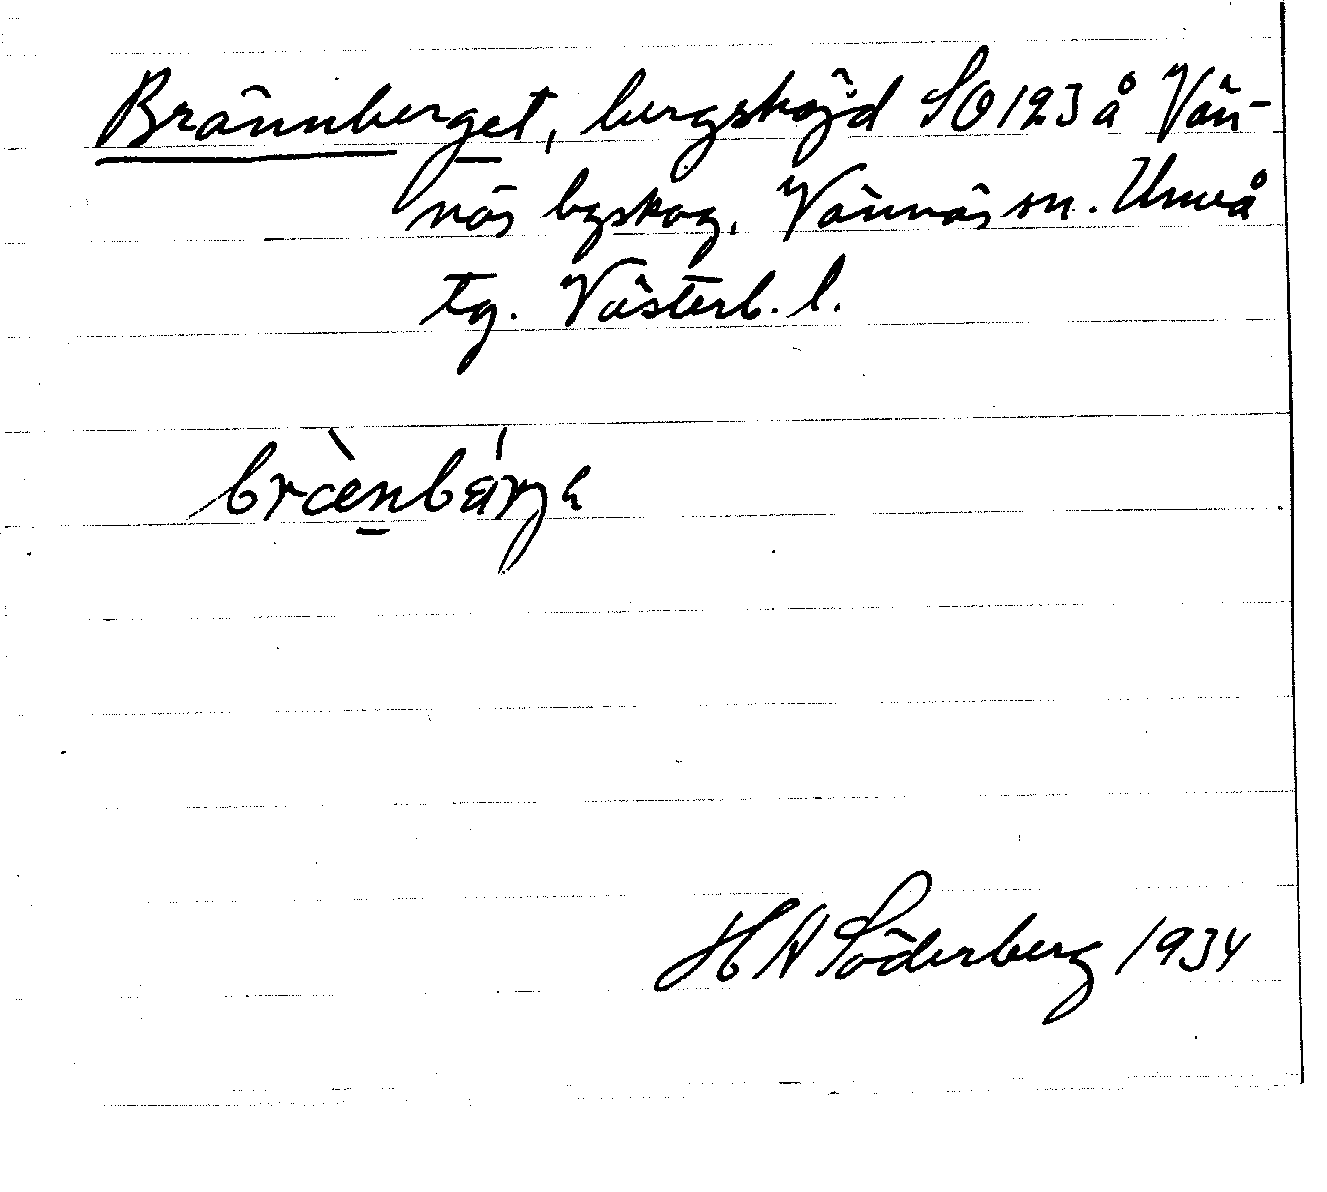 Brännberget, bergshöjd SO 123 å Vän-
näs byskog. Vännäs sn. Umeå
tg. Västerb. l.
H A Söderberg 1934